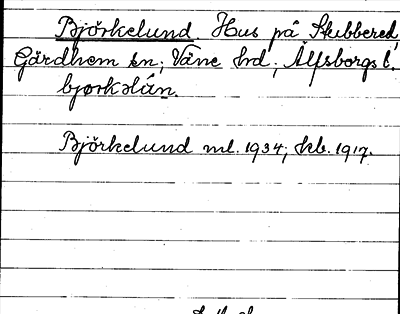 Björkelund. Hus på Stubbered,
Gärdhem sn; Väne hd; Älfsborgs l.
bjorkəlún.
Björkelund ml. 1934; kb. 1917.